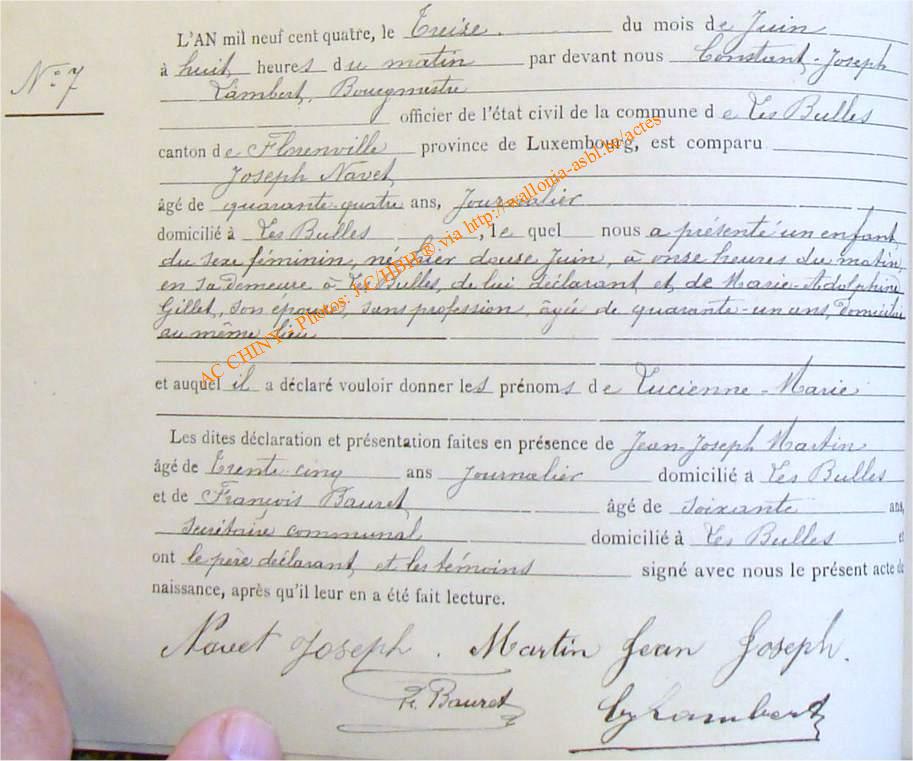 L'AN mil neuf cent quatre, le Treize du mois de Juin
N° 7
à huit heures du matin par devant nous Constant-Joseph
Lambert, Bourgmestre
officier de l'état civil de la commune de Les Bulles
canton de Florenville province de Luxembourg, est comparu
Joseph Navet
âgé de quarante-quatre ans, Journalier
domicilié à Les Bulles, le quel nous a présenté un enfant
du sexe féminin, né hier douze Juin, à onze heures du matin,
en sa demeure à Les Bulles, de lui déclarant et de Marie-Adolphine
Gillet, son épouse, sans profession, âgée de quarante-un ans, domiciliée
au même lieu
et auquel il a déclaré vouloir donner les prénoms de Lucienne-Marie
Les dites déclaration et présentation faites en présence de Jean-Joseph Martin
âgé de trente-cinq ans Journalier domicilié à Les Bulles
et de François Bauret âgé de soixante ans,
secrétaire communal domicilié à Les Bulles et
ont le père déclarant et les témoins signé avec nous le présent acte de
naissance, après qu'il leur en a été fait lecture.
Navet Joseph. Martin Jean Joseph.
Fr. Bauret Lambert
AC CHINY - Photos: J.C/HBH® via http://wallonia-asbl.be/actes